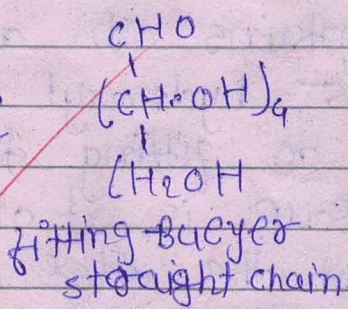 CHO
(CH•OH)4
CH2OH
fitting Baeyer
straight chain